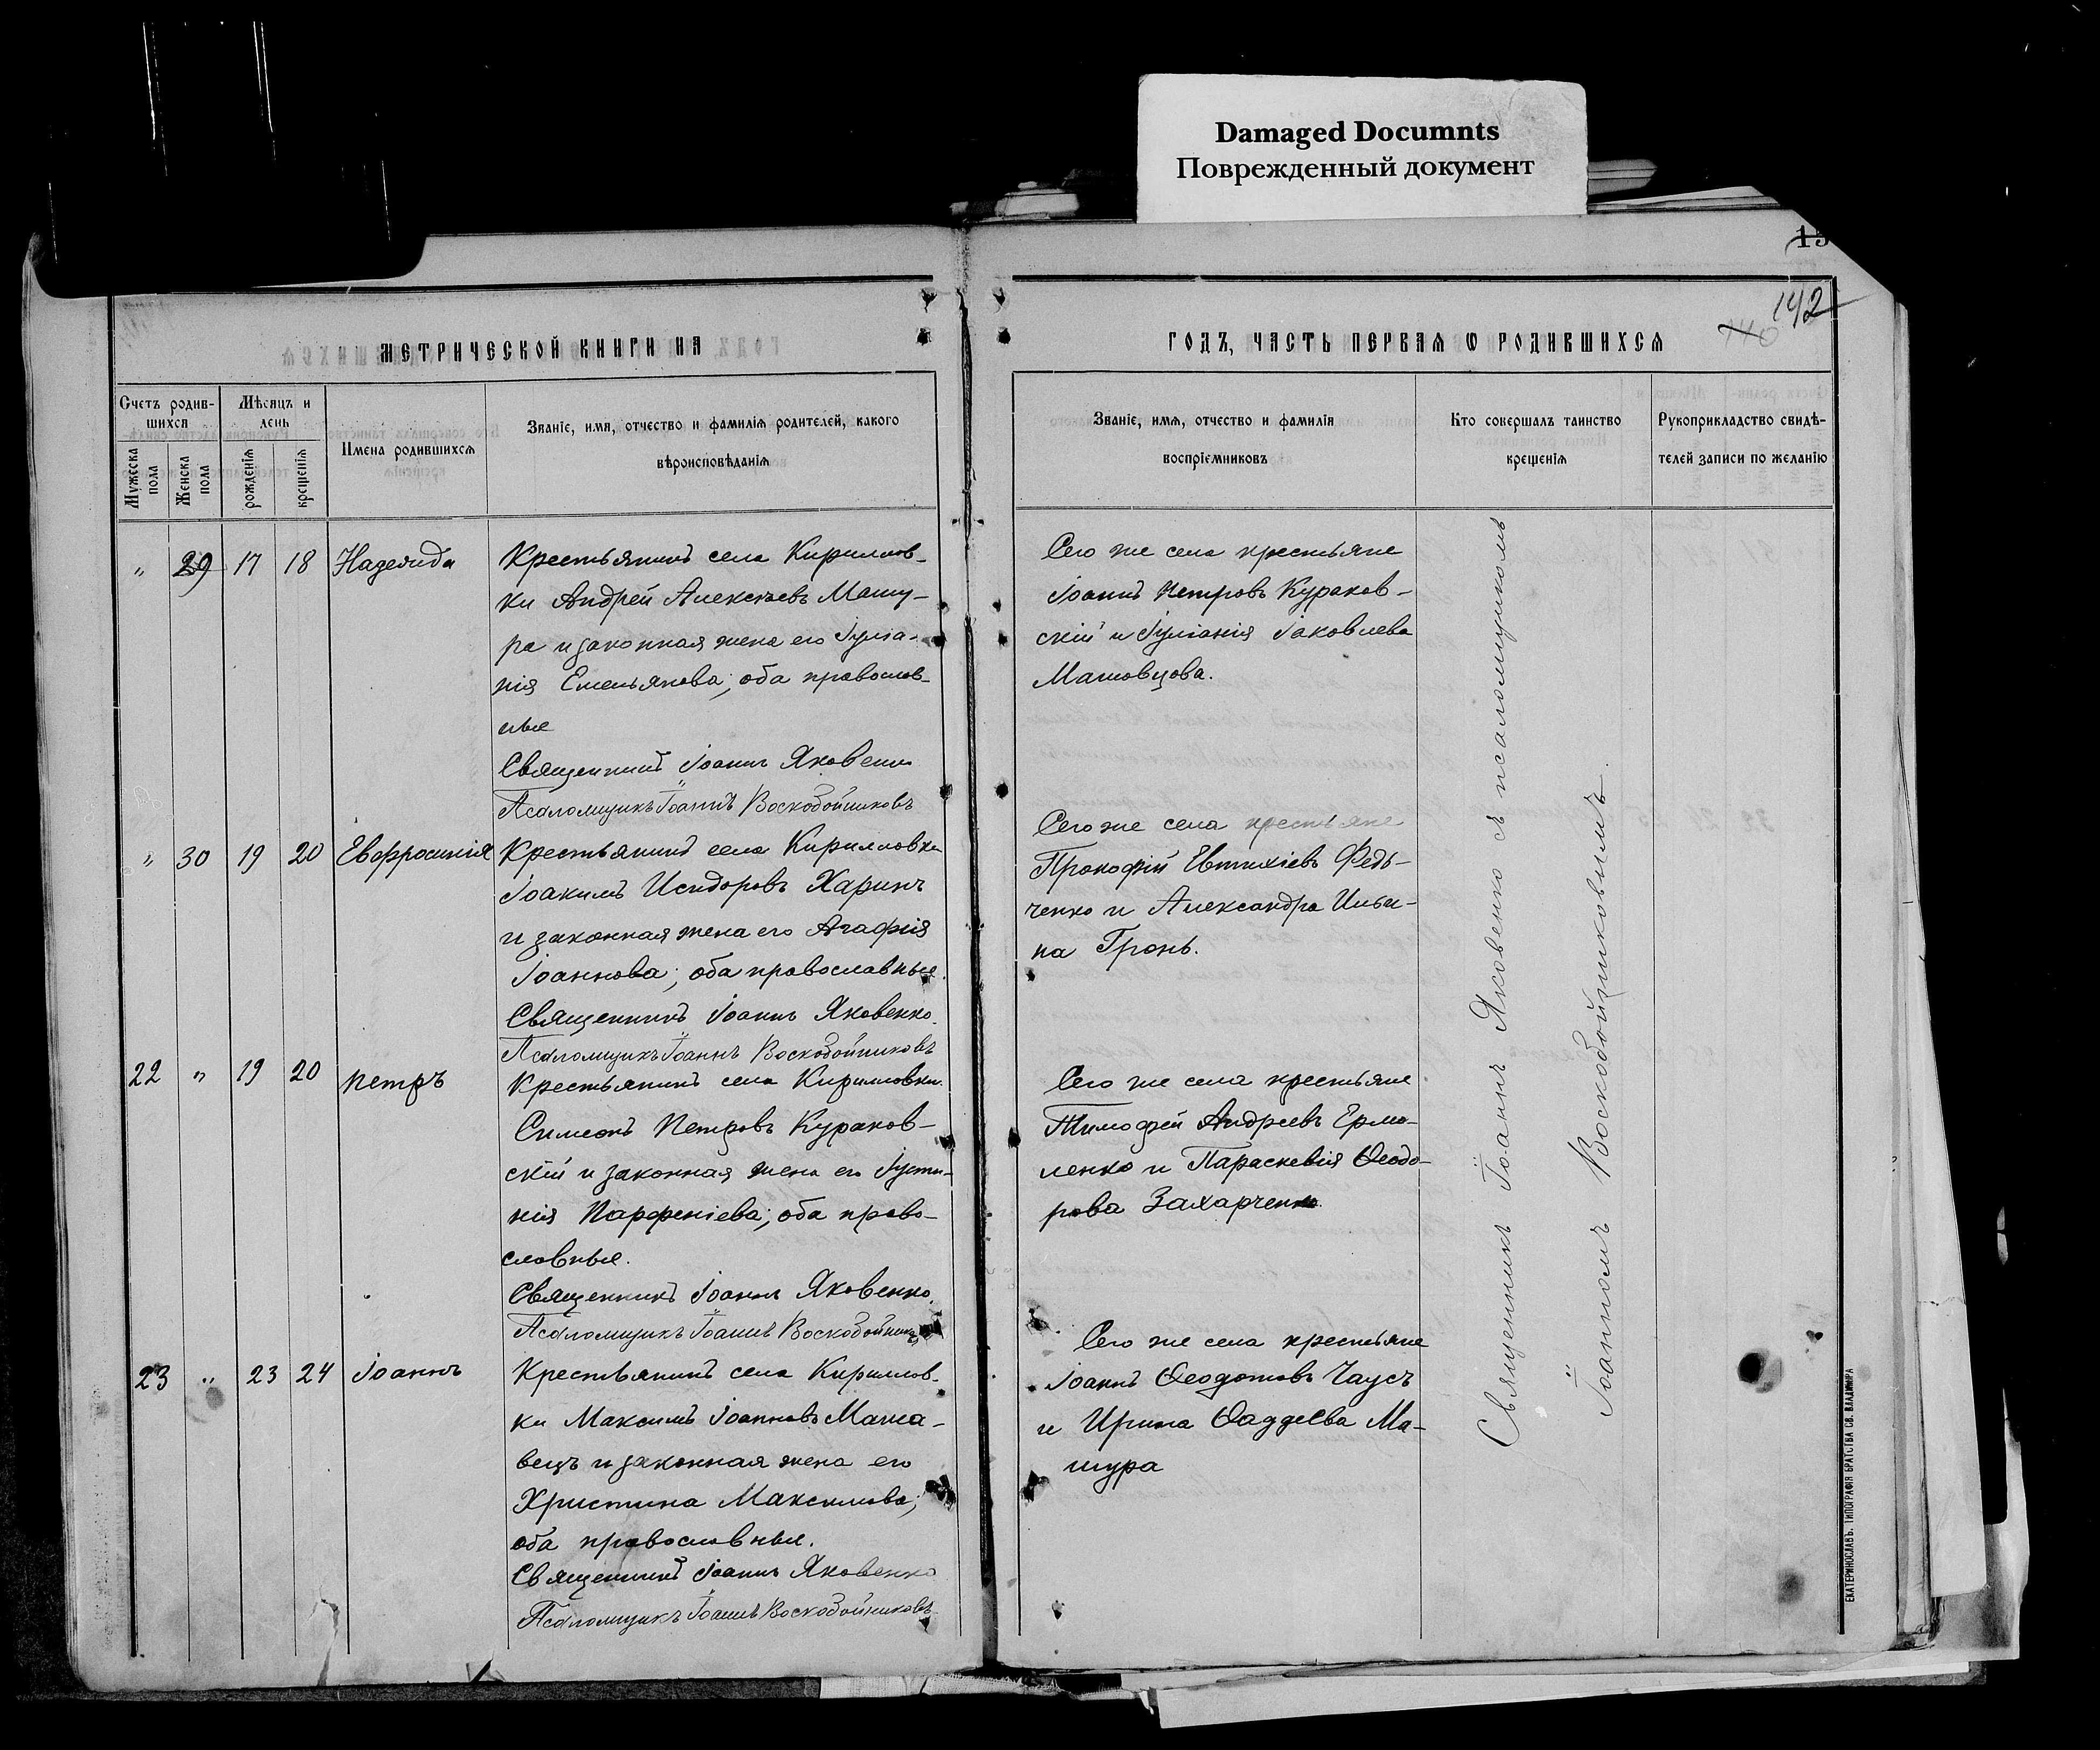 Damaged Documnts
Поврежденный документ
15
140
142
МЕТРИЧЕСКОЙ КНИГИ НА
Счетъ родив-
шихся
Мѣсяцъ и
день
Мужеска
пола
Женска
пола
рожденія
крещенія
Имена родившихся
Званіе, имя, отчество и фамилія родителей, какого
вѣроисповѣданія
„ 29 17 18 Надежда
Крестьянинъ села Кириллов-
ки Андрей Алексѣевъ Машу-
ра и законная жена его Іулiа-
нія Емельянова; оба православ-
ные
Священникъ Іоаннъ Яковенко
Псаломщикъ Іоаннъ Воскобойниковъ
„ 30 19 20 Евфросинія
Крестьянинъ села Кирилловки
Іоакимъ Исидоровъ Харинъ
и законная жена его Агафія
Іоаннова; оба православные.
Священникъ Іоаннъ Яковенко.
Псаломщикъ Іоаннъ Воскобойниковъ
22 „ 19 20 Петръ
Крестьянинъ села Кирилловки
Симеонъ Петровъ Кураков-
скій и законная жена его Іусти-
нія Парфеніева; оба право-
славные.
Священникъ Іоаннъ Яковенко.
Псаломщикъ Іоаннъ Воскобойниковъ
23 „ 23 24 Іоаннъ
Крестьянинъ села Кириллов-
ки Максимъ Іоанновъ Маша-
вецъ и законная жена его
Христина Максимова;
оба православные.
Священникъ Іоаннъ Яковенко
Псаломщикъ Іоаннъ Воскобойниковъ.
ГОДЪ, ЧАСТЬ ПЕРВАЯ Ѡ РОДИВШИХСЯ
Званіе, имя, отчество и фамилія
воспріемниковъ
Кто совершалъ таинство
крещенія
Рукоприкладство свидѣ-
телей записи по желанію
Сего же села крестьяне
Іоаннъ Петровъ Кураков-
скій и Іуліанія Іаковлева
Машовцова.
Сего же села крестьяне
Прокофій Евтихіевъ Федь-
ченко и Александра Ильи-
на Гронь.
Сего же села крестьяне
Тимофей Андреевъ Ермо-
ленко и Параскевія Ѳеодо-
рова Захарченко.
Сего же села крестьяне
Іоаннъ Ѳеодотовъ Чаусъ
и Ирина Ѳаддеева Ма-
шура
Священникъ Іоаннъ Яковенко съ псаломщикомъ
Іоанномъ Воскобойниковымъ.
ЕКАТЕРИНОСЛАВЪ. ТИПОГРАФІЯ БРАТСТВА СВ. ВЛАДИМІРА